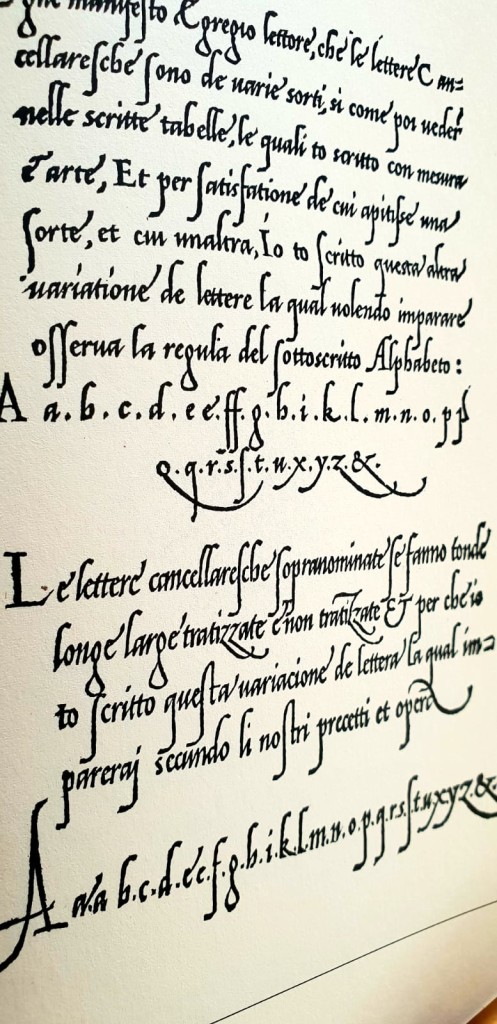 manifesto & gregio lettore, che le lettere Can=
cellaresche sono de varie sorti, si come poi veder
nelle scritte tabelle, le quali to scritto con mesura
e arte, Et per satisfatione de cui apitisse una
sorte, et cui unaltra, Io to scritto questa altra
variatione de lettere la qual volendo imparare
osserva la regula del sottoscritto Alphabeto:
A a.b.c.d.e e.ff.g.h.i.k.l.m.n.o.pp
q.q.r.s.ſ.t.u.x.y.z.&.
Le lettere cancellaresche sopranominate se fanno tonde
longe large tratizzate e non tratizate Et per che io
to scritto questa variacione de lettera la qual im=
pareraj secundo li nostri precetti et opera
A a.a b.c.d.e e.f.g.h.i.k.l.m.n.o.p.q.r.s.ſ.t.u.x.y.z.&.